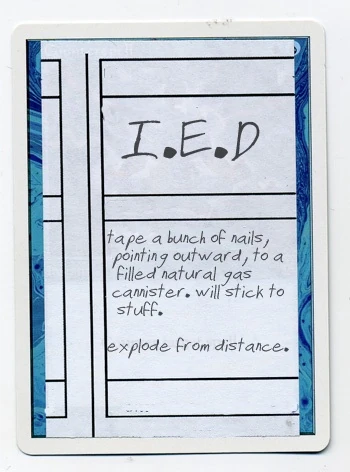 I.E.D
tape a bunch of nails,
pointing outward, to a
filled natural gas
cannister. will stick to
stuff.
explode from distance.